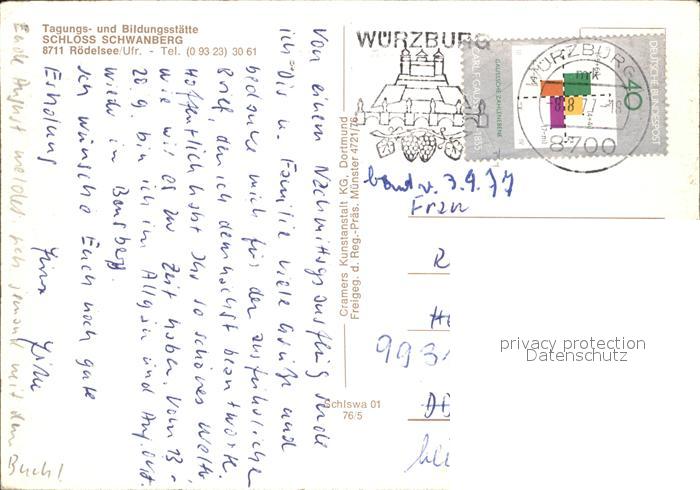 Tagungs- und Bildungsstätte
SCHLOSS SCHWANBERG
8711 Rödelsee/Ufr. - Tel. (0 93 23) 30 61
Von einem Nachmittagsausflug sende
ich Dir u. Familie viele Grüße und
bedanke mich für den ausführlichen
Brief, den ich demnächst beantworte.
Hoffentlich habt Ihr so schönes Wetter
wie wir es zur Zeit haben. Vom 13.-
20. 9. bin ich im Allgäu und Anf. Okt.
wieder in Bensberg.
Ich wünsche Euch noch gute
Erholung
Ende August meldet sich jemand mit dem
Buch!
Cramers Kunstanstalt KG, Dortmund
Freigeg. d. Reg.-Präs. Münster 4721/76
Schlswa 01
76/5
WÜRZBURG
CARL F. GAUSS
GAUSSSCHE ZAHLENEBENE
DEUTSCHE BUNDESPOST
40
WÜRZBURG
mk
8700
3.9.77
Frau
R
993
privacy protection
Datenschutz